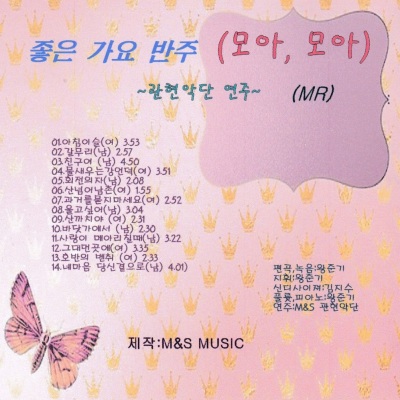 좋은 가요 반주 (모아, 모아)
~관현악단 연주~ (MR)
01.아침이슬(여) 3.53
02.갈무리(남) 2.57
03.친구여 (남) 4.50
04.물새우는강언덕(여) 3.51
05.회전의자(남) 2.08
06.산넘어남촌(여) 1.55
07.과거를묻지마세요(여) 2.52
08.울고싶어(남) 3.04
09.산까치야 (여) 2.31
10.바닷가에서 (남) 2.30
11.사랑이 메아리칠때(남) 3.22
12.그대먼곳에(여) 3.35
13.호반의 벤취 (여) 2.33
14.내마음 당신곁으로(남) 4.01)
편곡,녹음:원준기
지휘:원준기
신디사이져:김지수
플룻,피아노:원준기
연주:M&S 관현악단
제작:M&S MUSIC